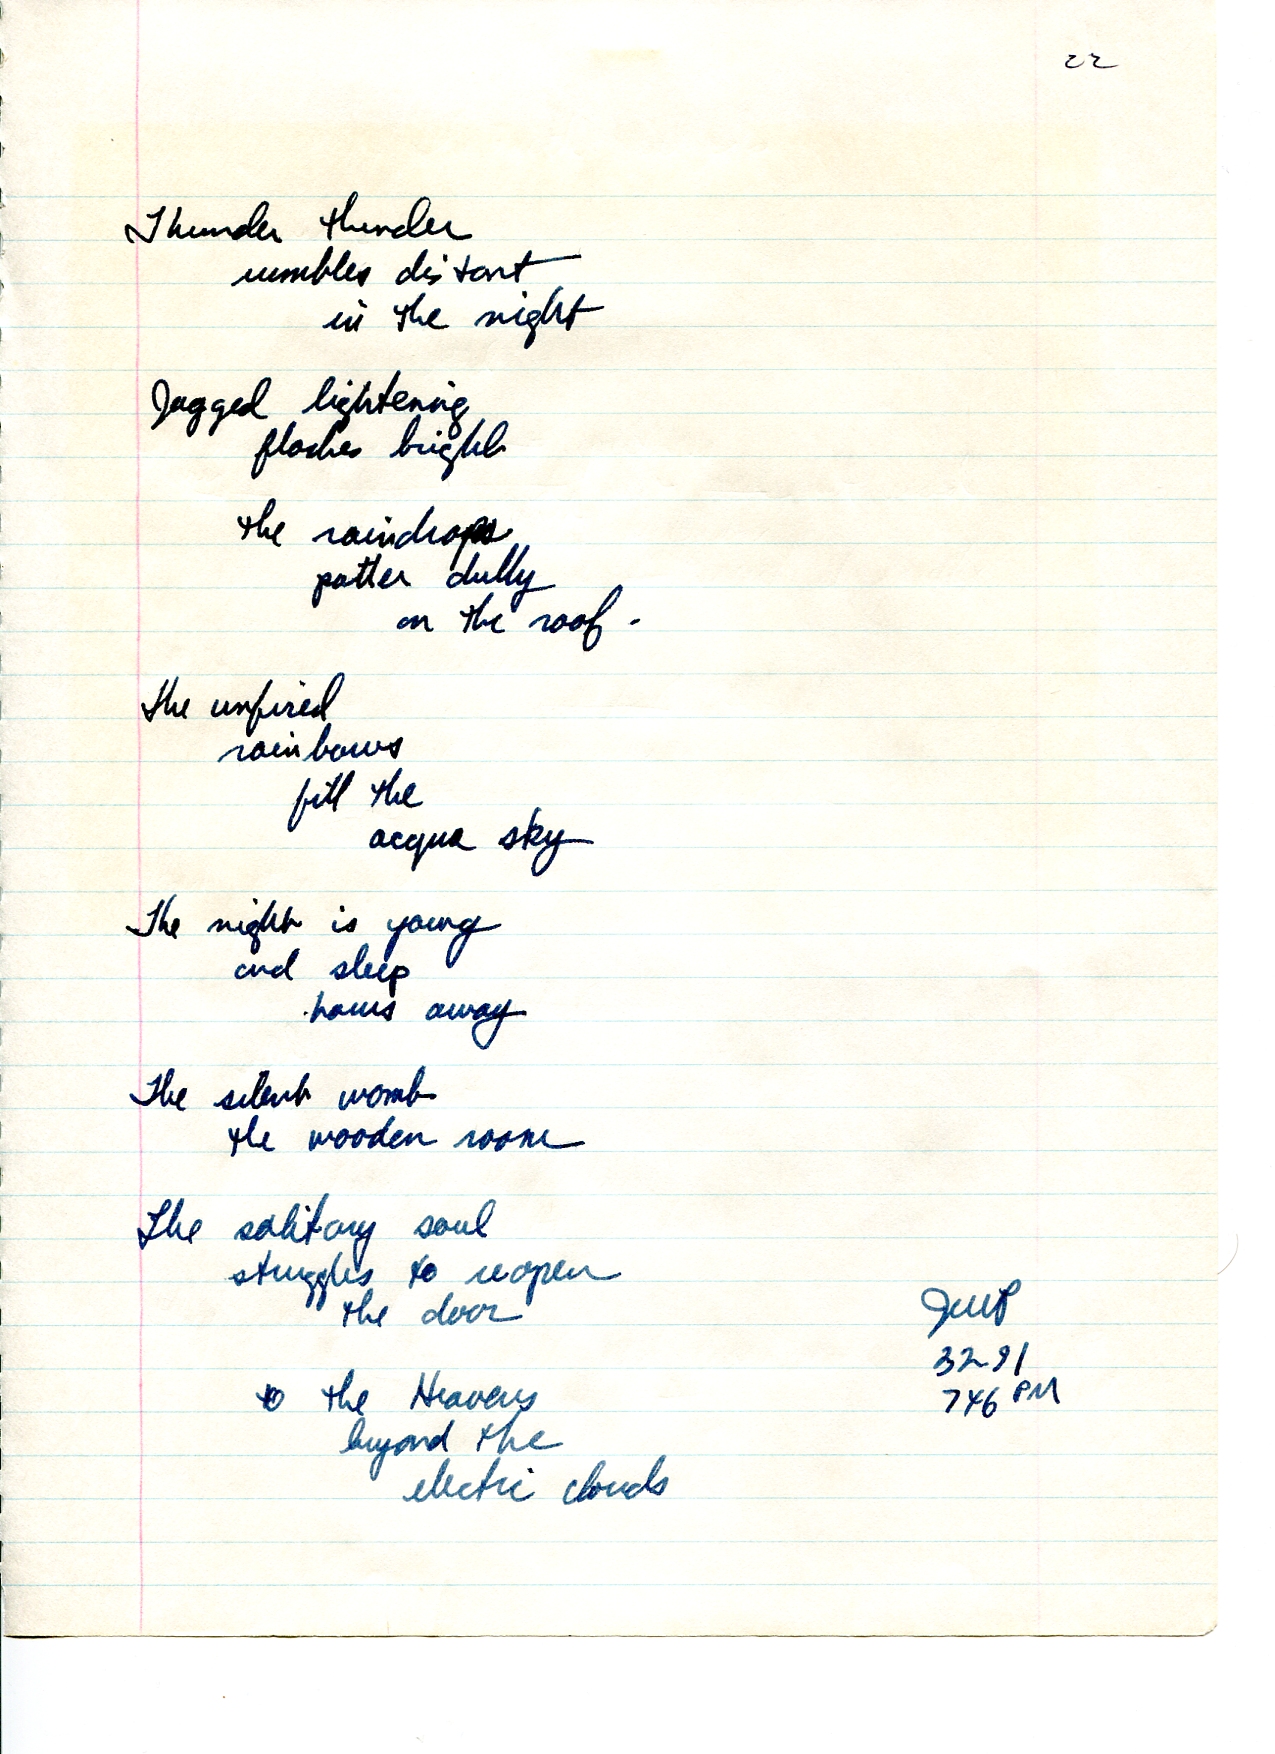 22
Thunder thunder
rumbles distant
in the night
Jagged lightening
flashes bright
the raindrops
patter dully
on the roof.
The unfired
rainbows
fill the
acqua sky
The night is young
and sleep
hours away
The silent womb
the wooden room
The solitary soul
struggles to reopen
the door
to the Heavens
beyond the
electric clouds
JWP
3291
746 PM